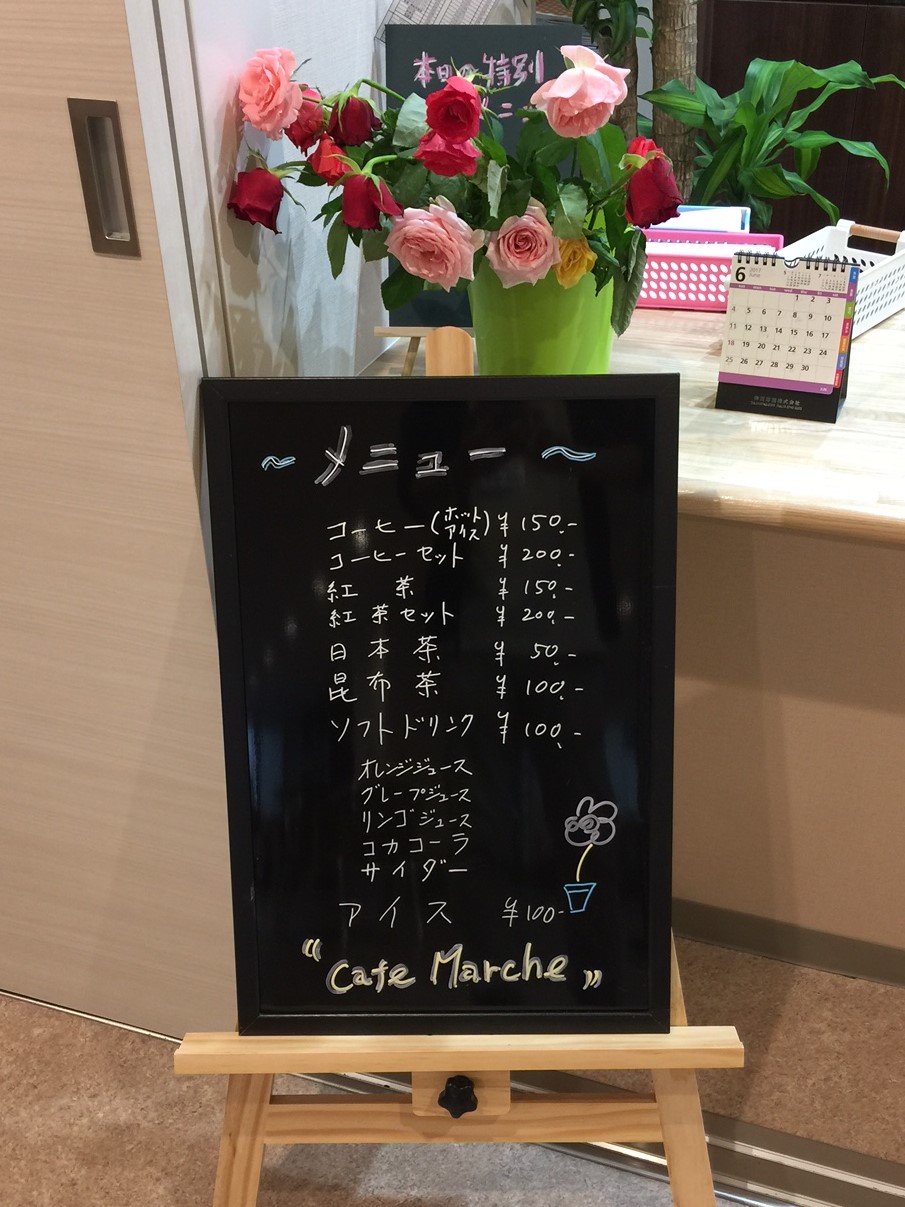 本日の特別
メニュー
6 2017 June
1 2 3
4 5 6 7 8 9 10
11 12 13 14 15 16 17
18 19 20 21 22 23 24
25 26 27 28 29 30
~ メニュー ~
コーヒー(ホットアイス) ¥150.-
コーヒーセット ¥200.-
紅茶 ¥150.-
紅茶セット ¥200.-
日本茶 ¥50.-
昆布茶 ¥100.-
ソフトドリンク ¥100.-
オレンジジュース
グレープジュース
リンゴジュース
コカコーラ
サイダー
アイス ¥100-
"Cafe Marche"